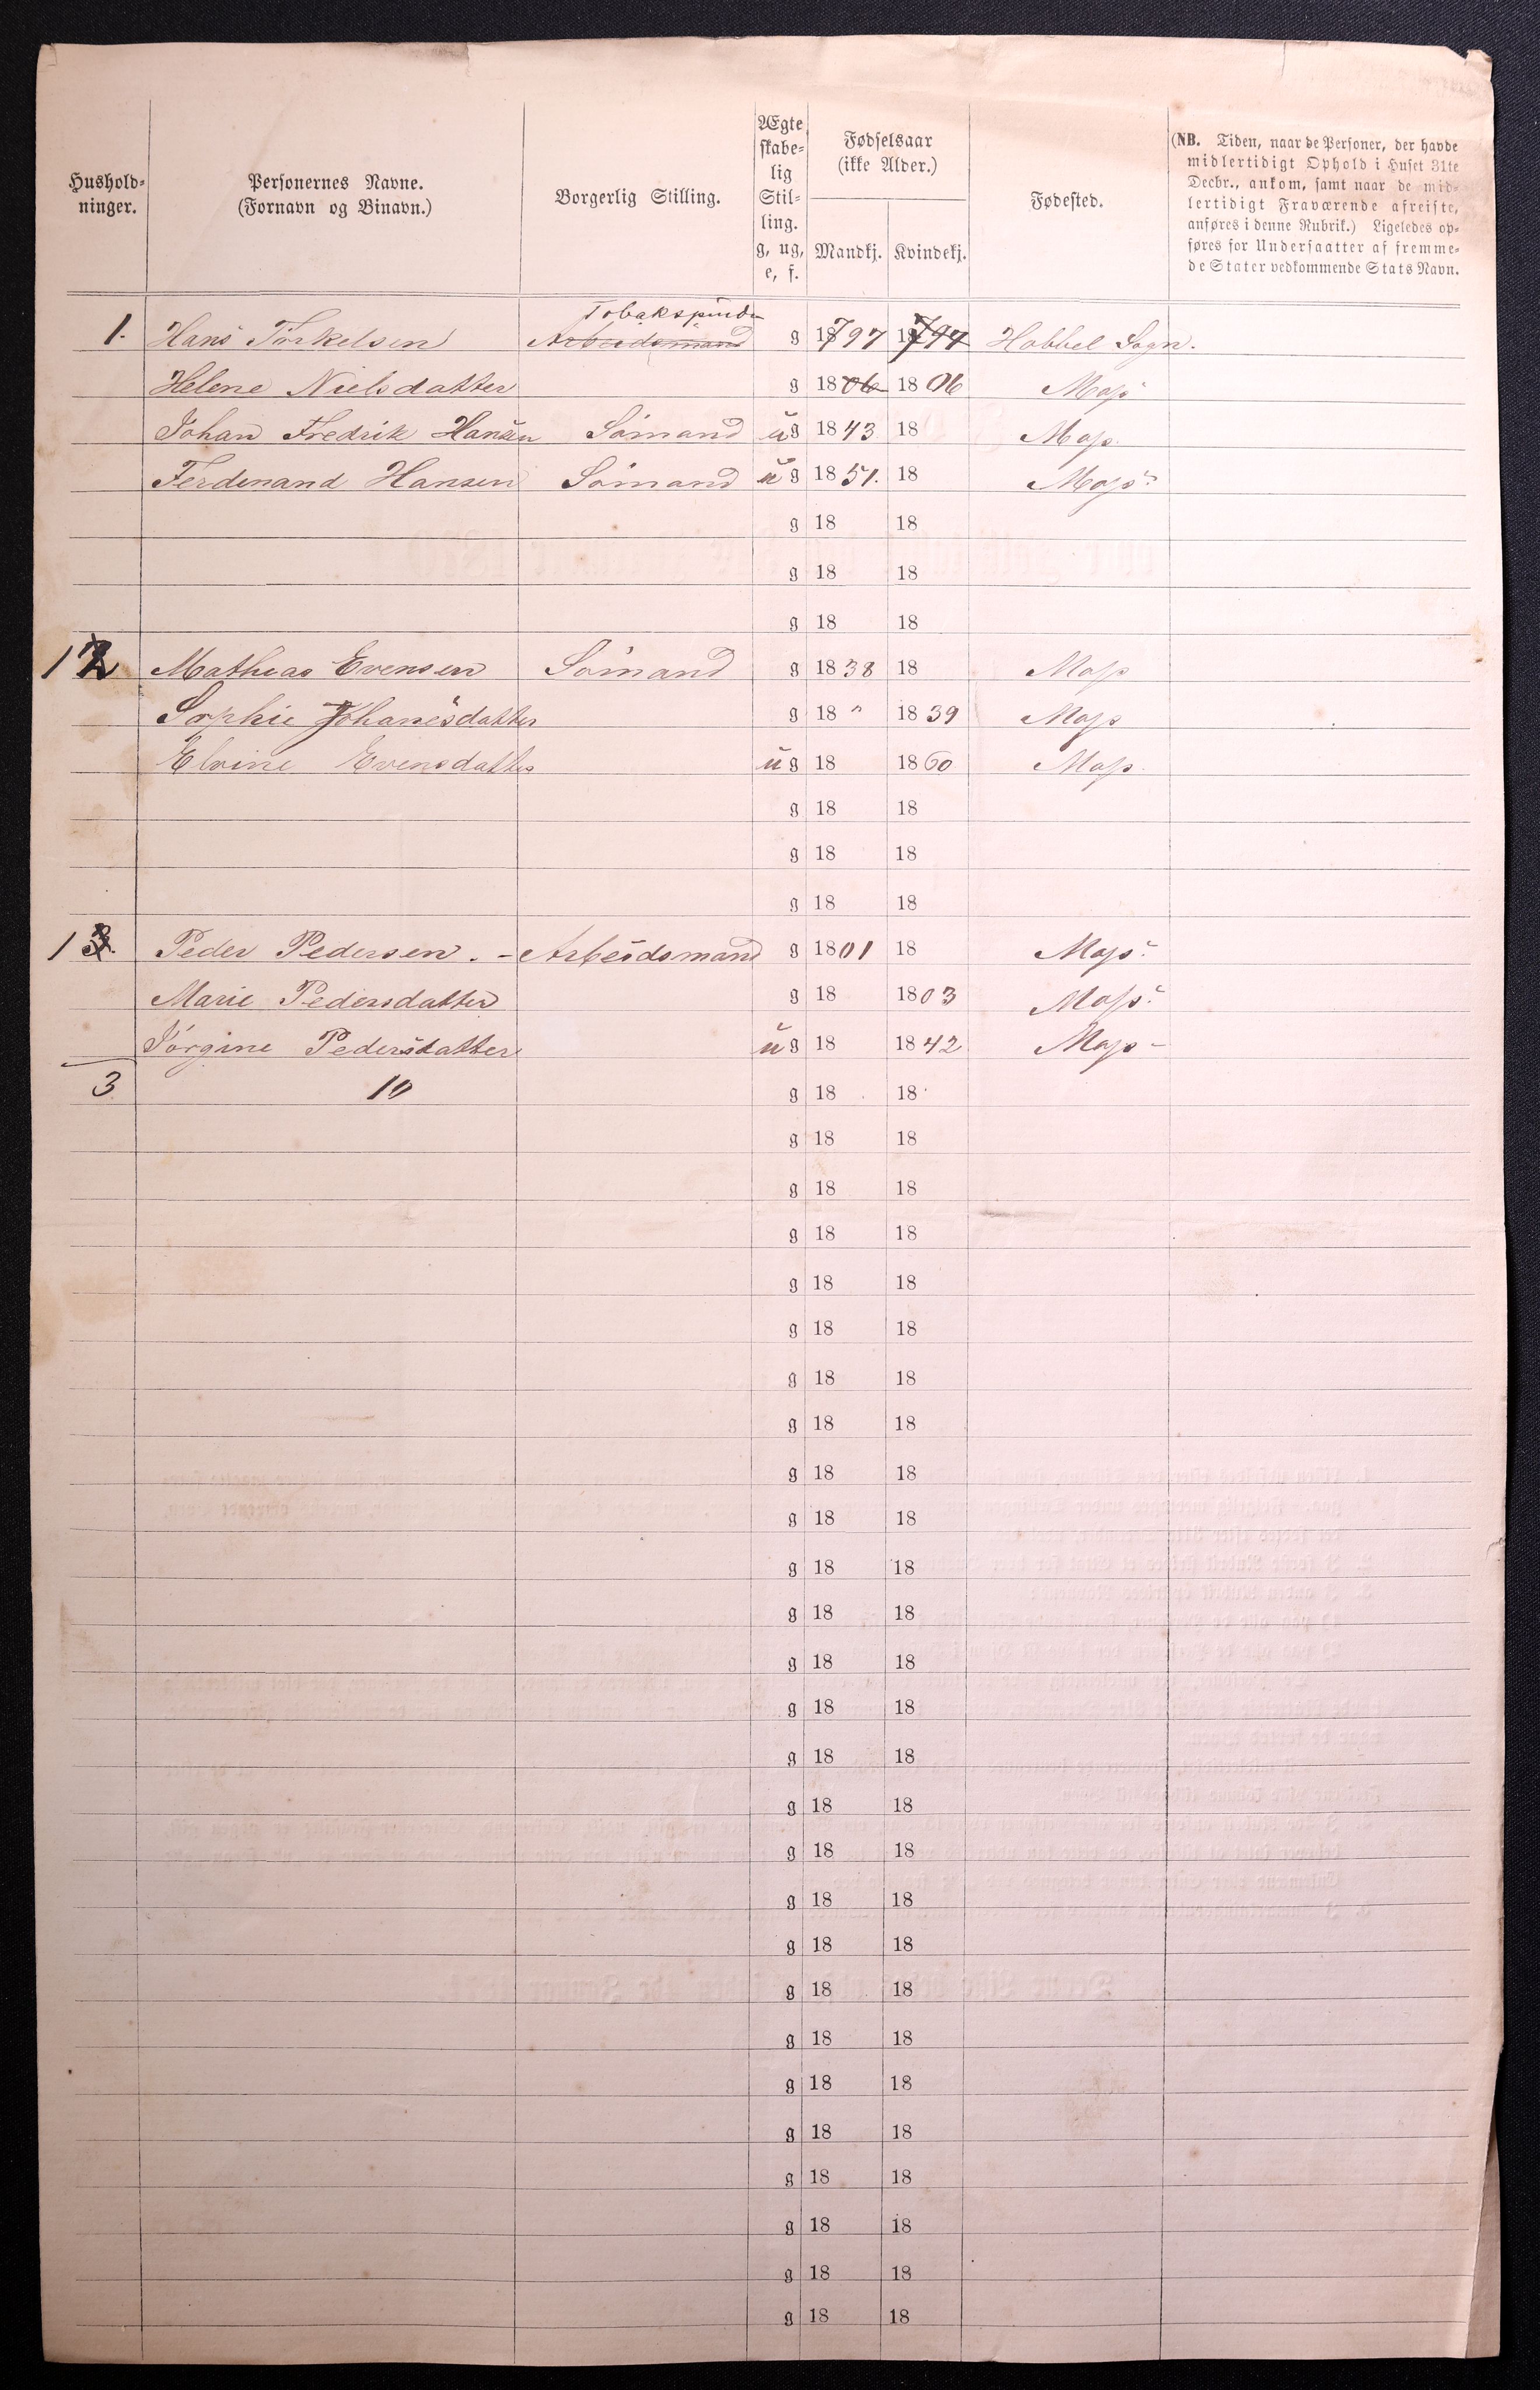 Hushold-
ninger.
Personernes Navne.
(Fornavn og Binavn.)
Borgerlig Stilling.
Ægte
skabe-
lig
Stil-
ling.
g, ug,
e, f.
Fødselsaar
(ikke Alder.)
Mandkj. Kvindekj.
Fødested.
(NB. Tiden, naar de Personer, der havde
midlertidigt Ophold i Huset 31te
Decbr., ankom, samt naar de mid-
lertidigt Fraværende afreiste,
anføres i denne Rubrik.) Ligeledes op-
føres for Undersaatter af fremme-
de Stater vedkommende Stats Navn.
Tobakspinder
1. Hans Torkelsen Arbeidsmand g 1797 1797 Hobbel Sogn.
Helene Nielsdatter g 1806 1806 Moss
Johan Fredrik Hansen Sömand ug 1843 18 Moss
Ferdenand Hansen Sömand ug 1851. 18 Moss
g 18 18
g 18 18
g 18 18
1 2 Mathias Evensen Sömand g 1838 18 Moss
Sophie Johanesdatter g 18 " 1839 Moss
Elvine Evensdatter ug 18 1860 Moss
g 18 18
g 18 18
g 18 18
1 3. Peder Pedersen. - Arbeidsmand g 1801 18 Moss
Marie Pedersdatter g 18 1803 Moss
Jörgine Pedersdatter ug 18 1842 Moss -
3 10 g 18 18
g 18 18
g 18 18
g 18 18
g 18 18
g 18 18
g 18 18
g 18 18
g 18 18
g 18 18
g 18 18
g 18 18
g 18 18
g 18 18
g 18 18
g 18 18
g 18 18
g 18 18
g 18 18
g 18 18
g 18 18
g 18 18
g 18 18
g 18 18
g 18 18
g 18 18
g 18 18